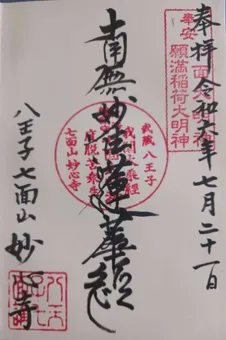 奉拝 令和七年七月二十一日
奉安
願満稲荷大明神
南無妙法蓮華経
武蔵八王子
度脱苦衆生
七面山妙心寺
八王子七面山 妙心寺